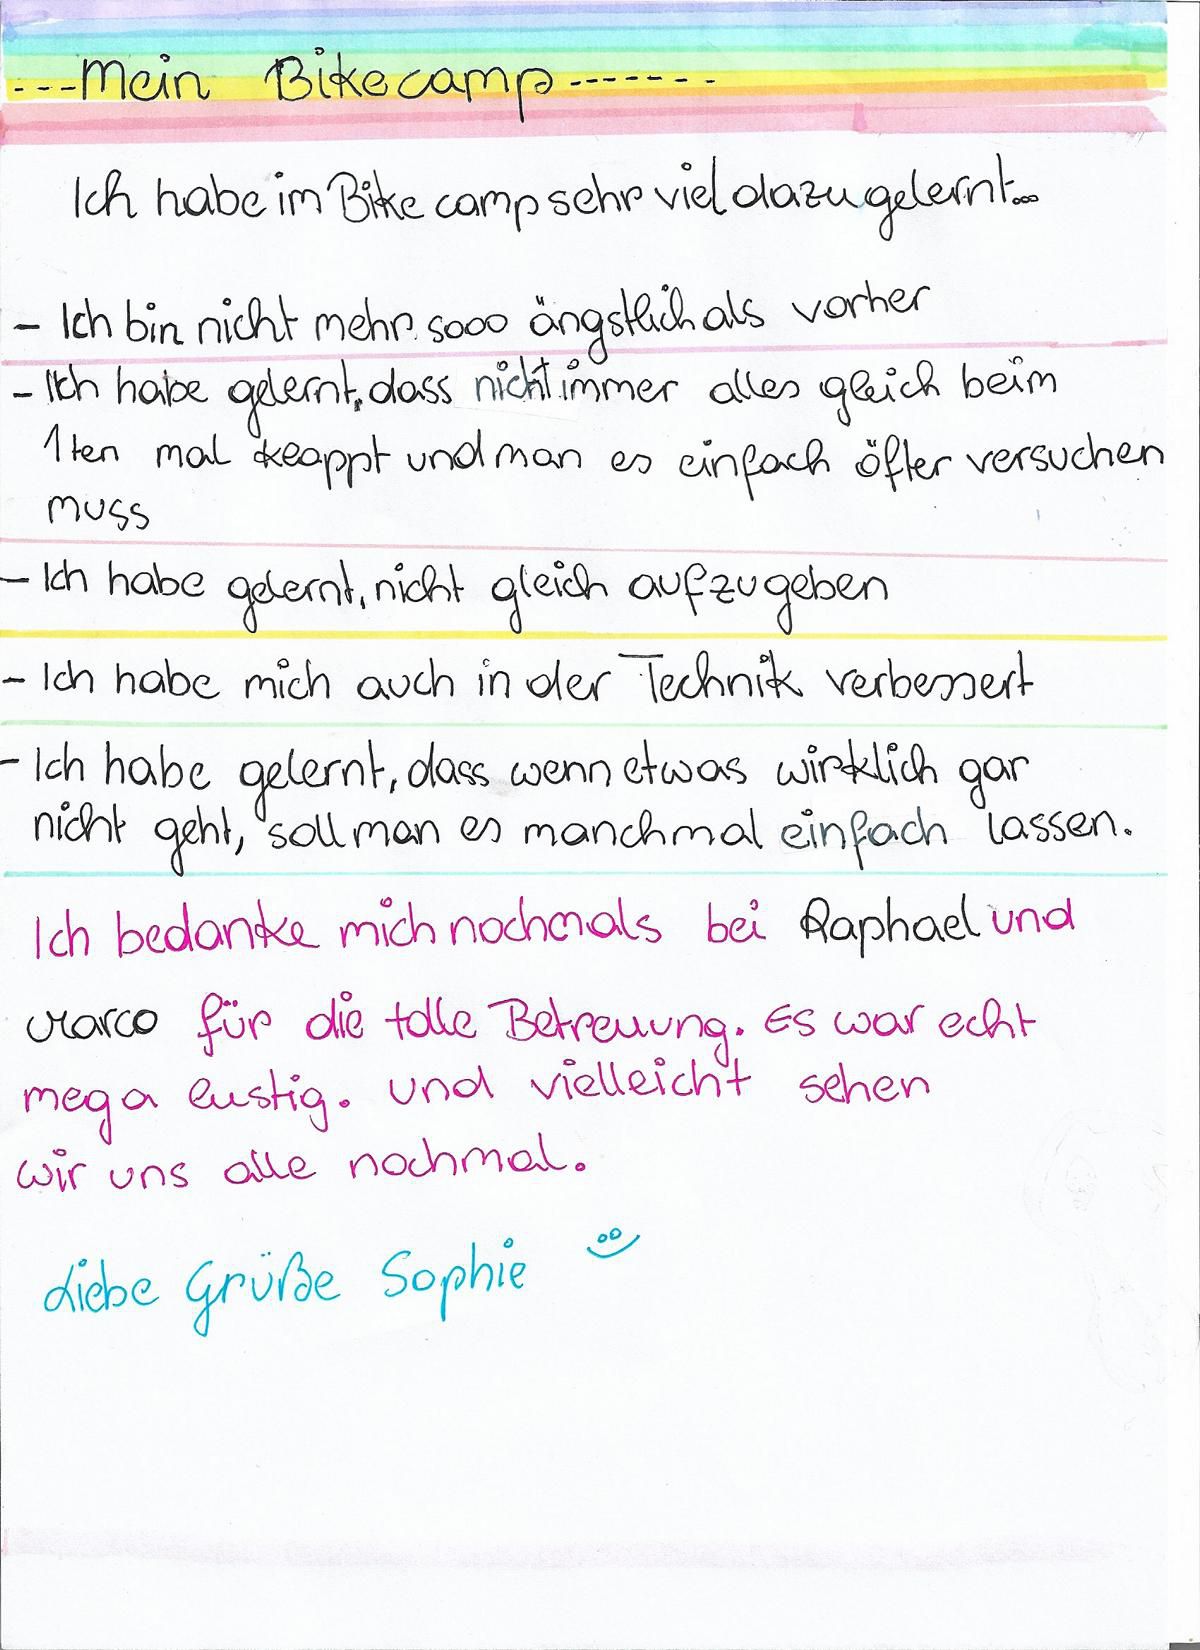 ---Mein Bikecamp-------
Ich habe im Bikecamp sehr viel dazugelernt...
- Ich bin nicht mehr sooo ängstlich als vorher
- Ich habe gelernt, dass nicht immer alles gleich beim
1ten mal klappt und man es einfach öfter versuchen
muss
- Ich habe gelernt, nicht gleich aufzugeben
- Ich habe mich auch in der Technik verbessert
- Ich habe gelernt, dass wenn etwas wirklich gar
nicht geht, soll man es manchmal einfach lassen.
Ich bedanke mich nochmals bei Raphael und
Marco für die tolle Betreuung. Es war echt
mega lustig. Und vielleicht sehen
wir uns alle nochmal.
Liebe Grüße Sophie